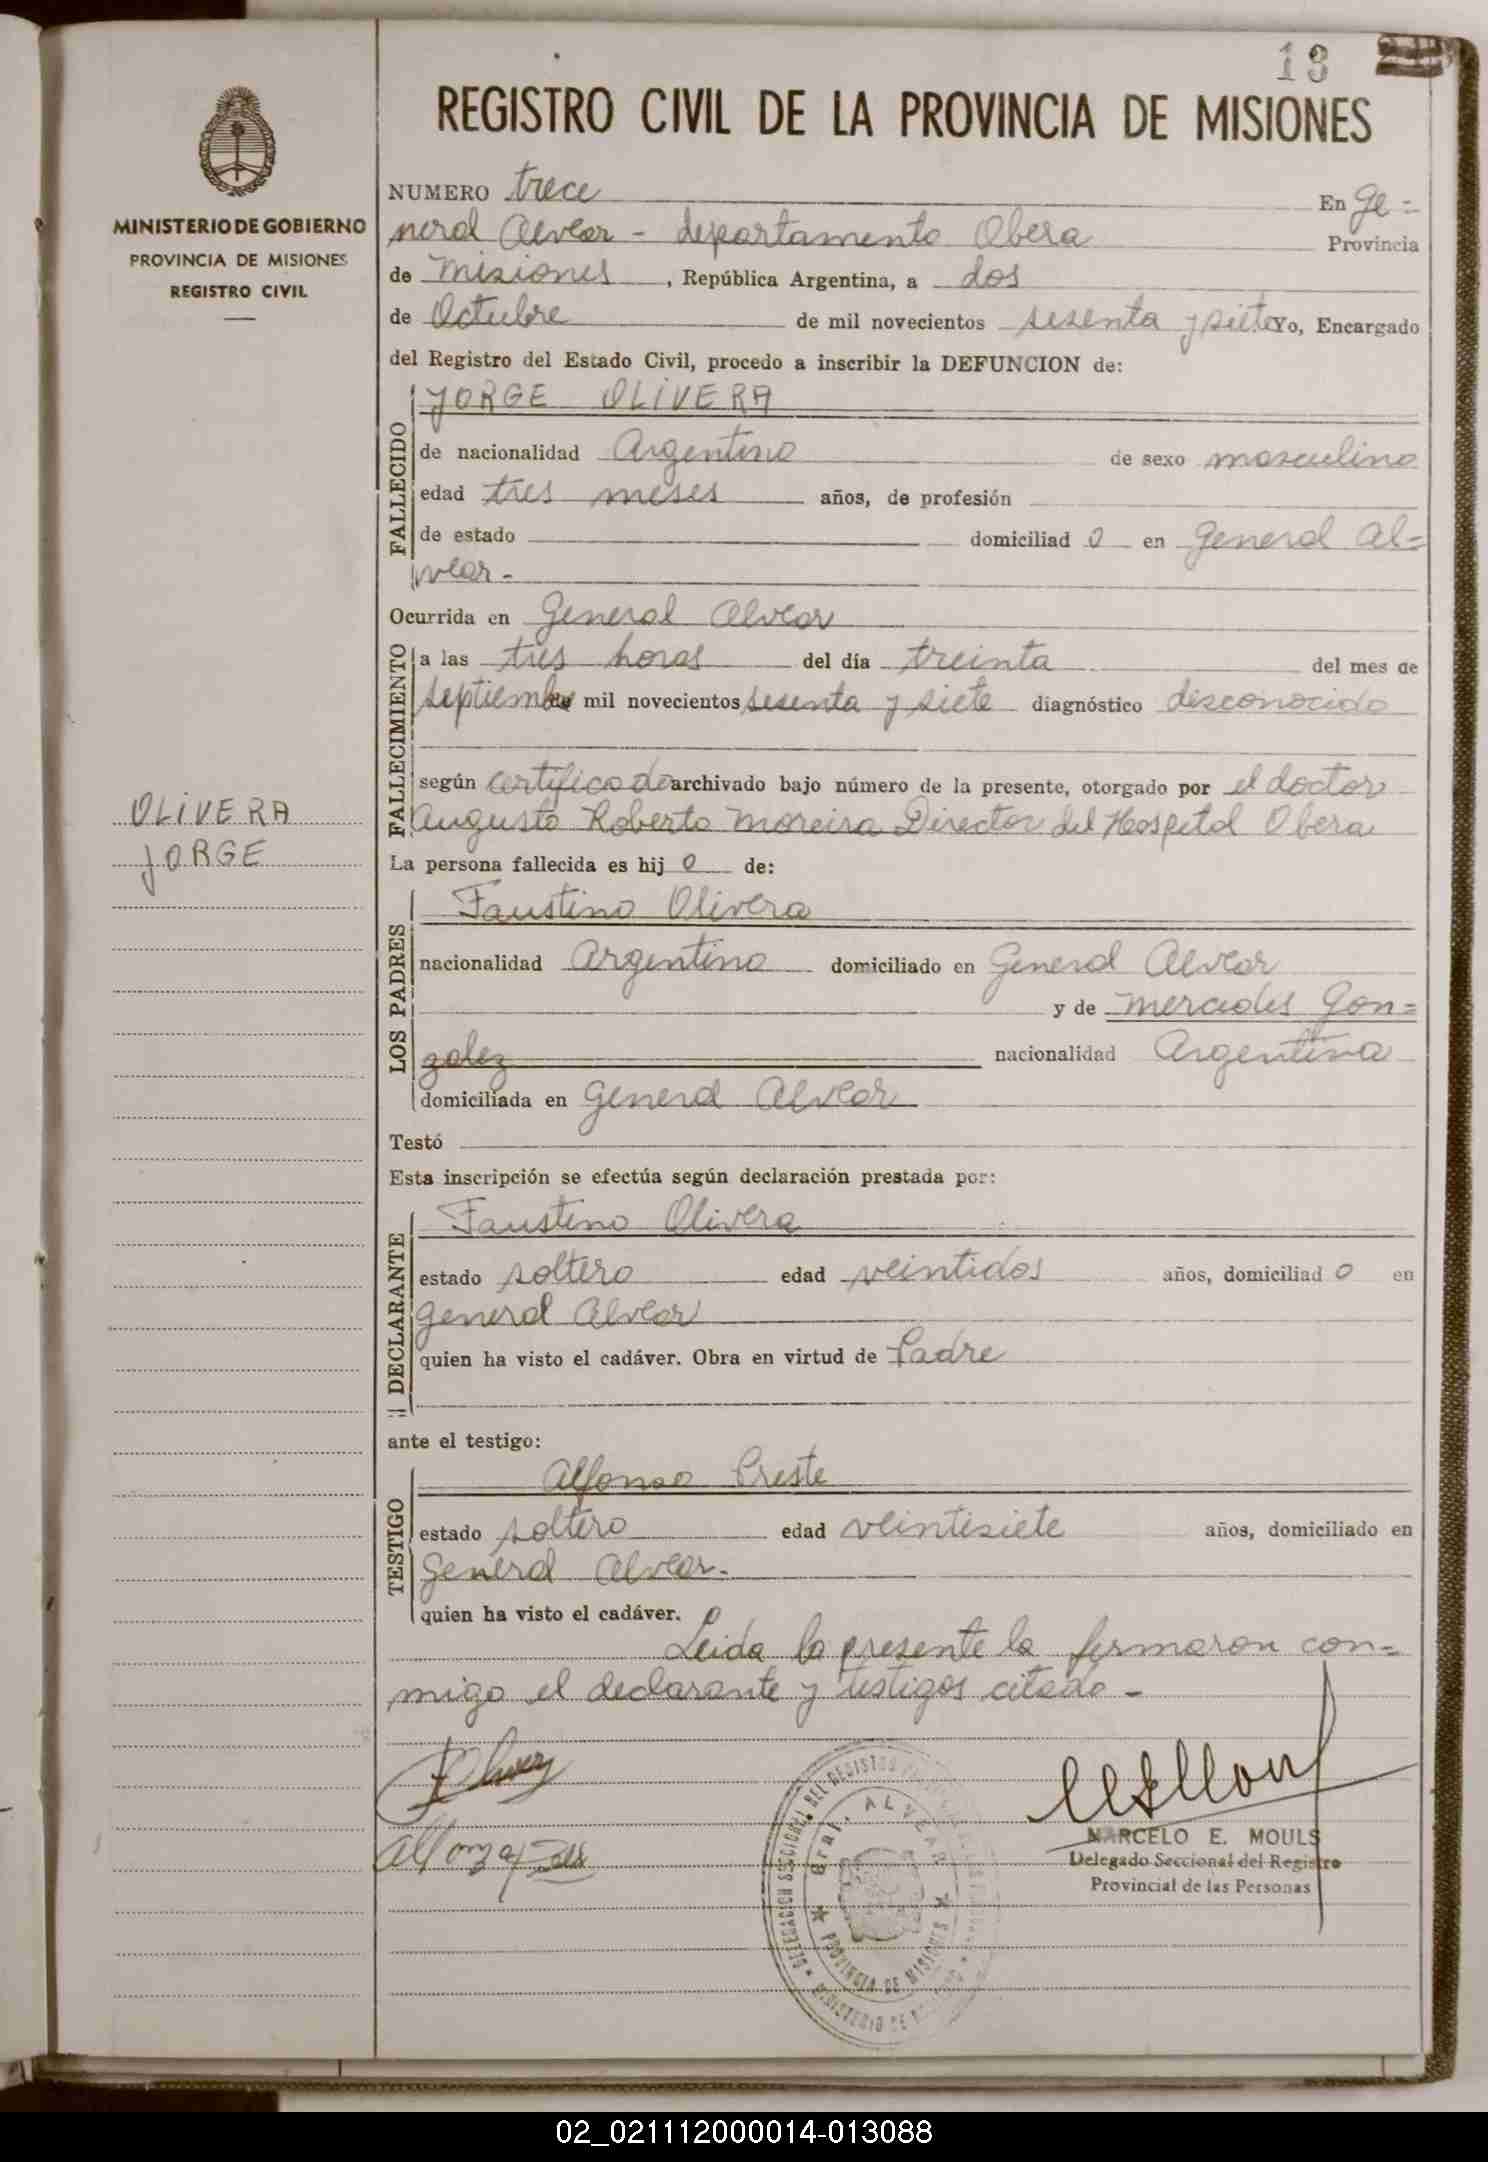 13
REGISTRO CIVIL DE LA PROVINCIA DE MISIONES
MINISTERIO DE GOBIERNO
PROVINCIA DE MISIONES
REGISTRO CIVIL
NUMERO trece En Ge=
neral Alvear - departamento Obera Provincia
de Misiones, República Argentina, a dos
de Octubre de mil novecientos sesenta y siete Yo, Encargado
del Registro del Estado Civil, procedo a inscribir la DEFUNCION de:
FALLECIDO
JORGE OLIVERA
de nacionalidad Argentino de sexo masculino
edad tres meses años, de profesión
de estado domiciliad o en General Al=
vear-
Ocurrida en General Alvear
FALLECIMIENTO
a las tres horas del día treinta del mes de
septiembre mil novecientos sesenta y siete diagnóstico desconocido
según certificado archivado bajo número de la presente, otorgado por el doctor
Augusto Roberto Moreira Director del Hospital Obera
OLIVERA
JORGE
La persona fallecida es hij o de:
LOS PADRES
Faustino Olivera
nacionalidad Argentino domiciliado en General Alvear
y de Mercedes Gon=
zalez nacionalidad Argentina
domiciliada en General Alvear
Testó
Esta inscripción se efectúa según declaración prestada por:
DECLARANTE
Faustino Olivera
estado soltero edad veintidos años, domiciliad o en
General Alvear
quien ha visto el cadáver. Obra en virtud de Padre
ante el testigo:
TESTIGO
Alfonso Preste
estado soltero edad veintisiete años, domiciliado en
General Alvear-
quien ha visto el cadáver.
Leida la presente la firmaron con=
migo el declarante y testigos citado-
MARCELO E. MOULS
Delegado Seccional del Registro
Provincial de las Personas
DELEGACION SECCIONAL DEL REGISTRO
Gral. ALVEAR
PROVINCIA DE MISIONES
MINISTERIO DE
02_021112000014-013088